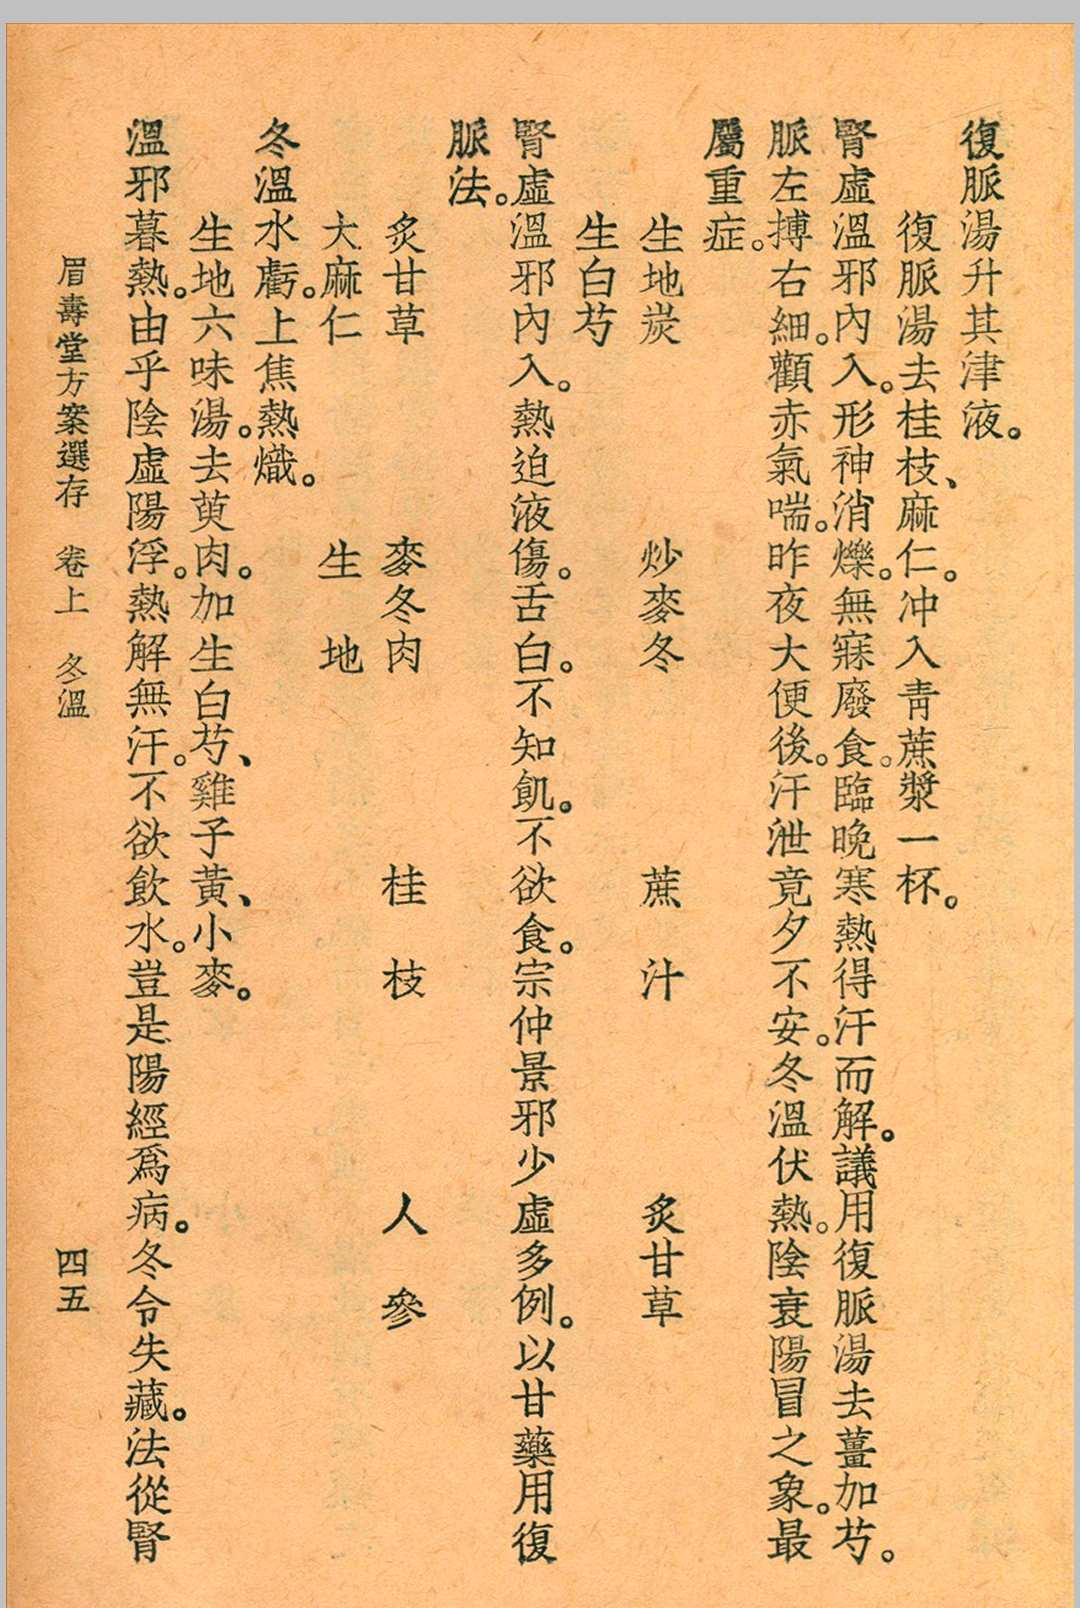 復脈湯升其津液。
復脈湯去桂枝、麻仁。冲入青蔗漿一杯。
腎虛溫邪內入。形神消爍。無寐廢食。臨晚寒熱得汗而解。議用復脈湯去薑加芍。
脈左搏右細。顴赤氣喘。昨夜大便後。汗泄竟夕不安。冬溫伏熱。陰衰陽冒之象。最
屬重症。
生地炭　炒麥冬　蔗汁　炙甘草
生白芍
腎虛溫邪內入。熱迫液傷。舌白。不知飢。不欲食。宗仲景邪少虛多例。以甘藥用復
脈法。
炙甘草　麥冬肉　桂枝　人參
大麻仁　生地
冬溫水虧。上焦熱熾。
生地六味湯。去萸肉。加生白芍、雞子黃、小麥。
溫邪暮熱。由乎陰虛陽浮。熱解無汗。不欲飲水。豈是陽經爲病。冬令失藏。法從腎
眉壽堂方案選存　卷上　冬溫　四五